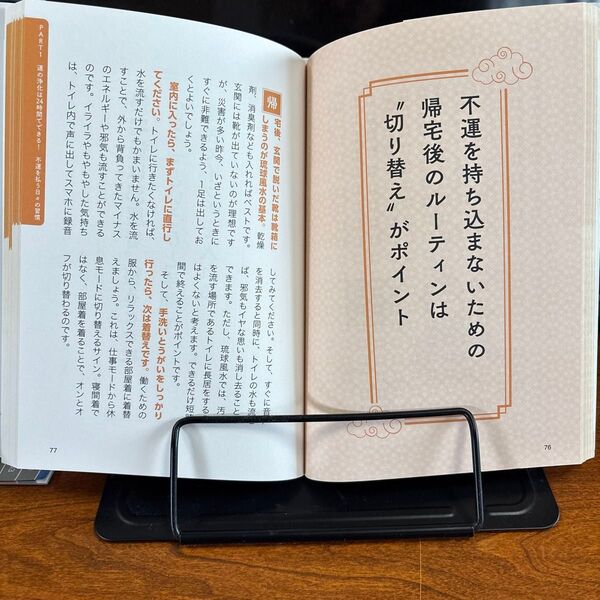 不運を持ち込まないための
帰宅後のルーティンは
〝切り替え〟がポイント
76
帰宅後、玄関で脱いだ靴は靴箱に
しまうのが琉球風水の基本。乾燥
剤、消臭剤なども入れればベストです。
玄関には靴が出ていないのが理想です
が、災害が多い昨今、いざというときに
すぐに非難できるよう、1足は出してお
くとよいでしょう。
室内に入ったら、まずトイレに直行し
てください。トイレに行きたくなければ、
水を流すだけでもかまいません。水を流
すことで、外から背負ってきたマイナス
のエネルギーや邪気も流すことができる
のです。イライラやもやもやした気持ち
は、トイレ内で声に出してスマホに録音
してみてください。そして、すぐに音
を消去すると同時に、トイレの水も流
ば、邪気もイヤな思いも消し去ること
できます。ただし、琉球風水では、汚
を流す場所であるトイレに長居をする
はよくないと考えます。できるだけ短時
間で終えることがポイントです。
そして、手洗いとうがいをしっかり
行ったら、次は着替えです。働くための
服から、リラックスできる部屋着に着替
えましょう。これは、仕事モードから休
息モードに切り替えるサイン。寝間着で
はなく、部屋着を着ることで、オンとオ
フが切り替わるのです。
PART1 運の浄化は24時間でできる! 不運を払う日々の習慣
77